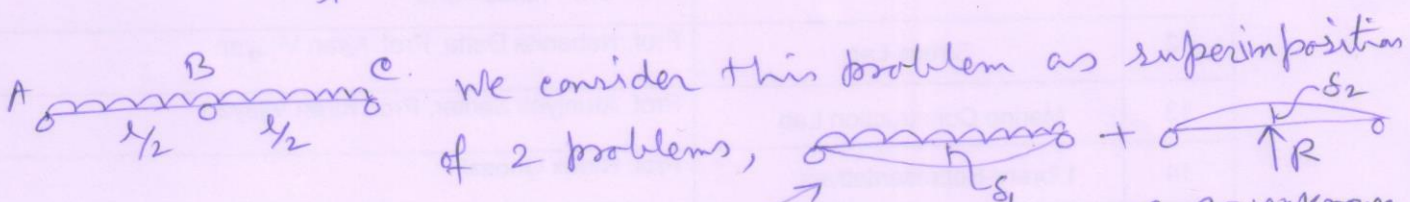 A B C. We consider this problem as superimposition
l/2 l/2 of 2 problems, + δ2
δ1 R